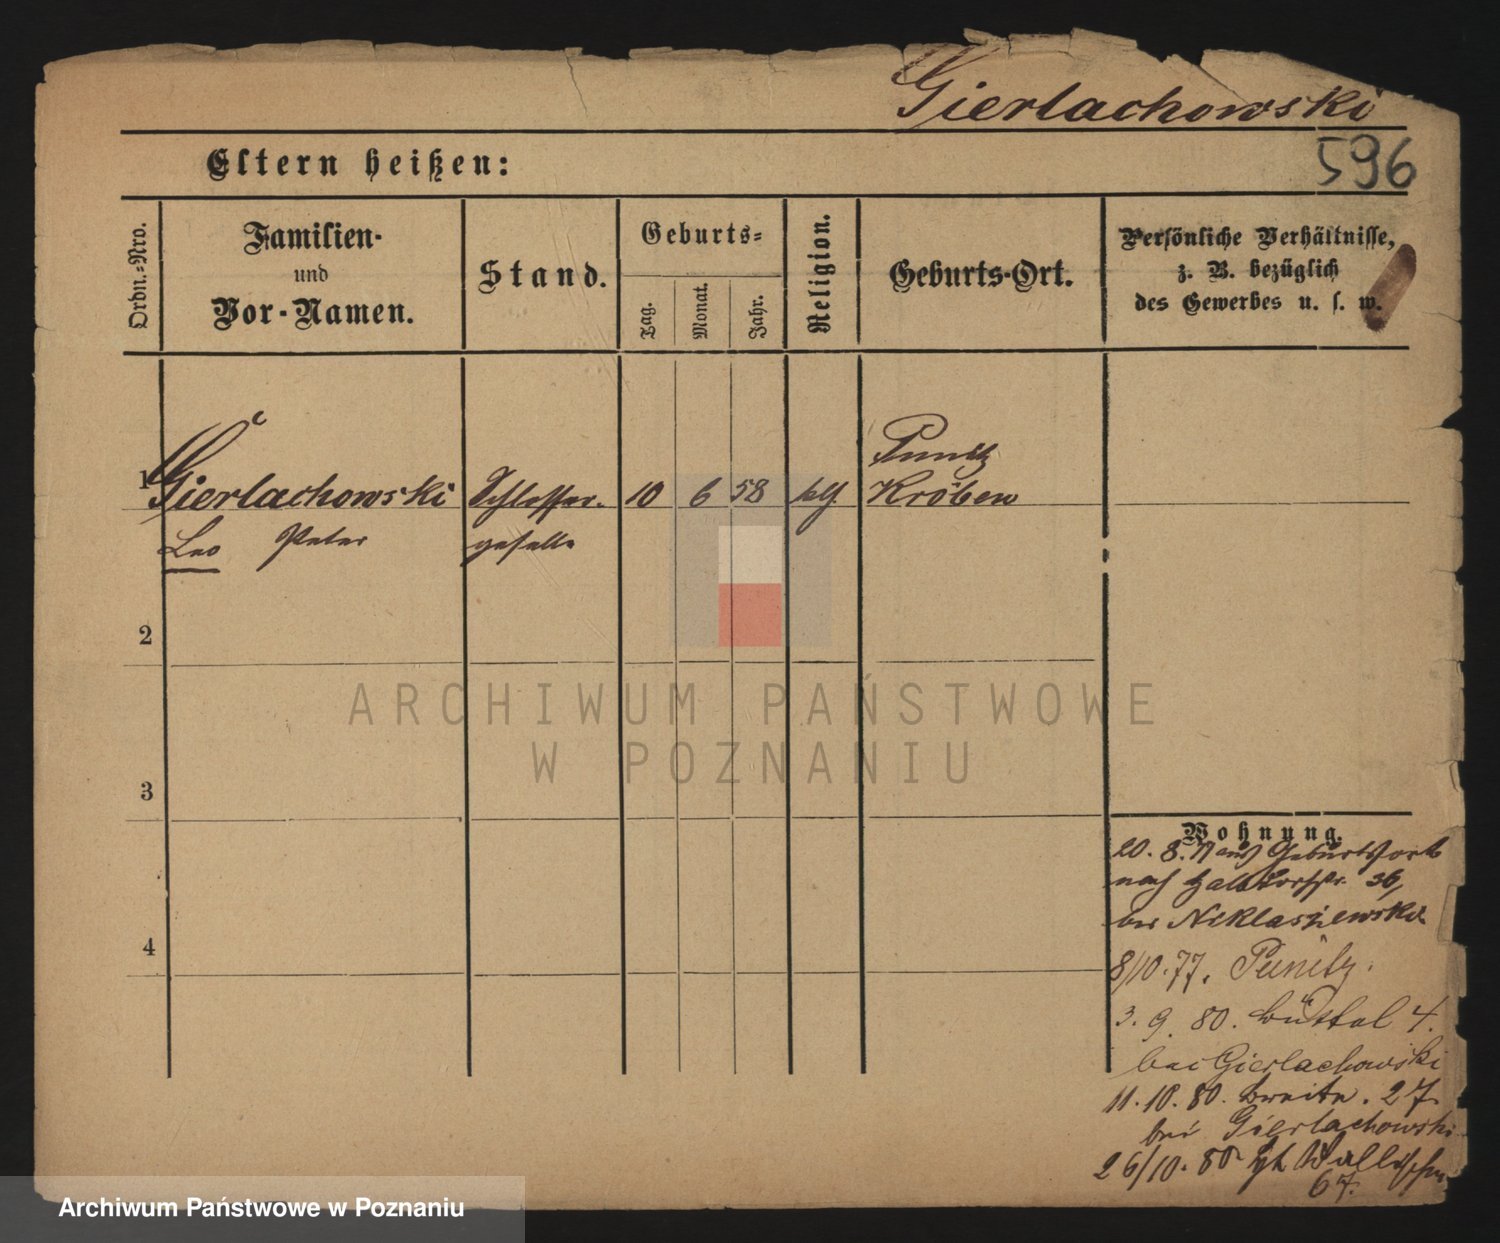 Gierlachowski
596
Eltern heißen:
Ordn.=Nro.
Familien-
und
Vor-Namen.
Stand.
Geburts=
Tag.
Monat.
Jahr.
Religion.
Geburts-Ort.
Persönliche Verhältnisse,
z. B. bezüglich
des Gewerbes u. s. w.
1
Gierlachowski
Leo Peter
Schlosser-
geselle
10
6
58
Punitz
Kröben
2
3
4
Wohnung.
20. 8. 77 aus Geburtsort
nach Halbdorfstr. 36,
bei Niklaszewski
8/10.77. Punitz.
3. 9. 80. Büttel 4.
bei Gierlachowski
11. 10. 80. Breite. 27.
bei Gierlachowski
26/10. 80
67.
ARCHIWUM PAŃSTWOWE
W POZNANIU
Archiwum Państwowe w Poznaniu